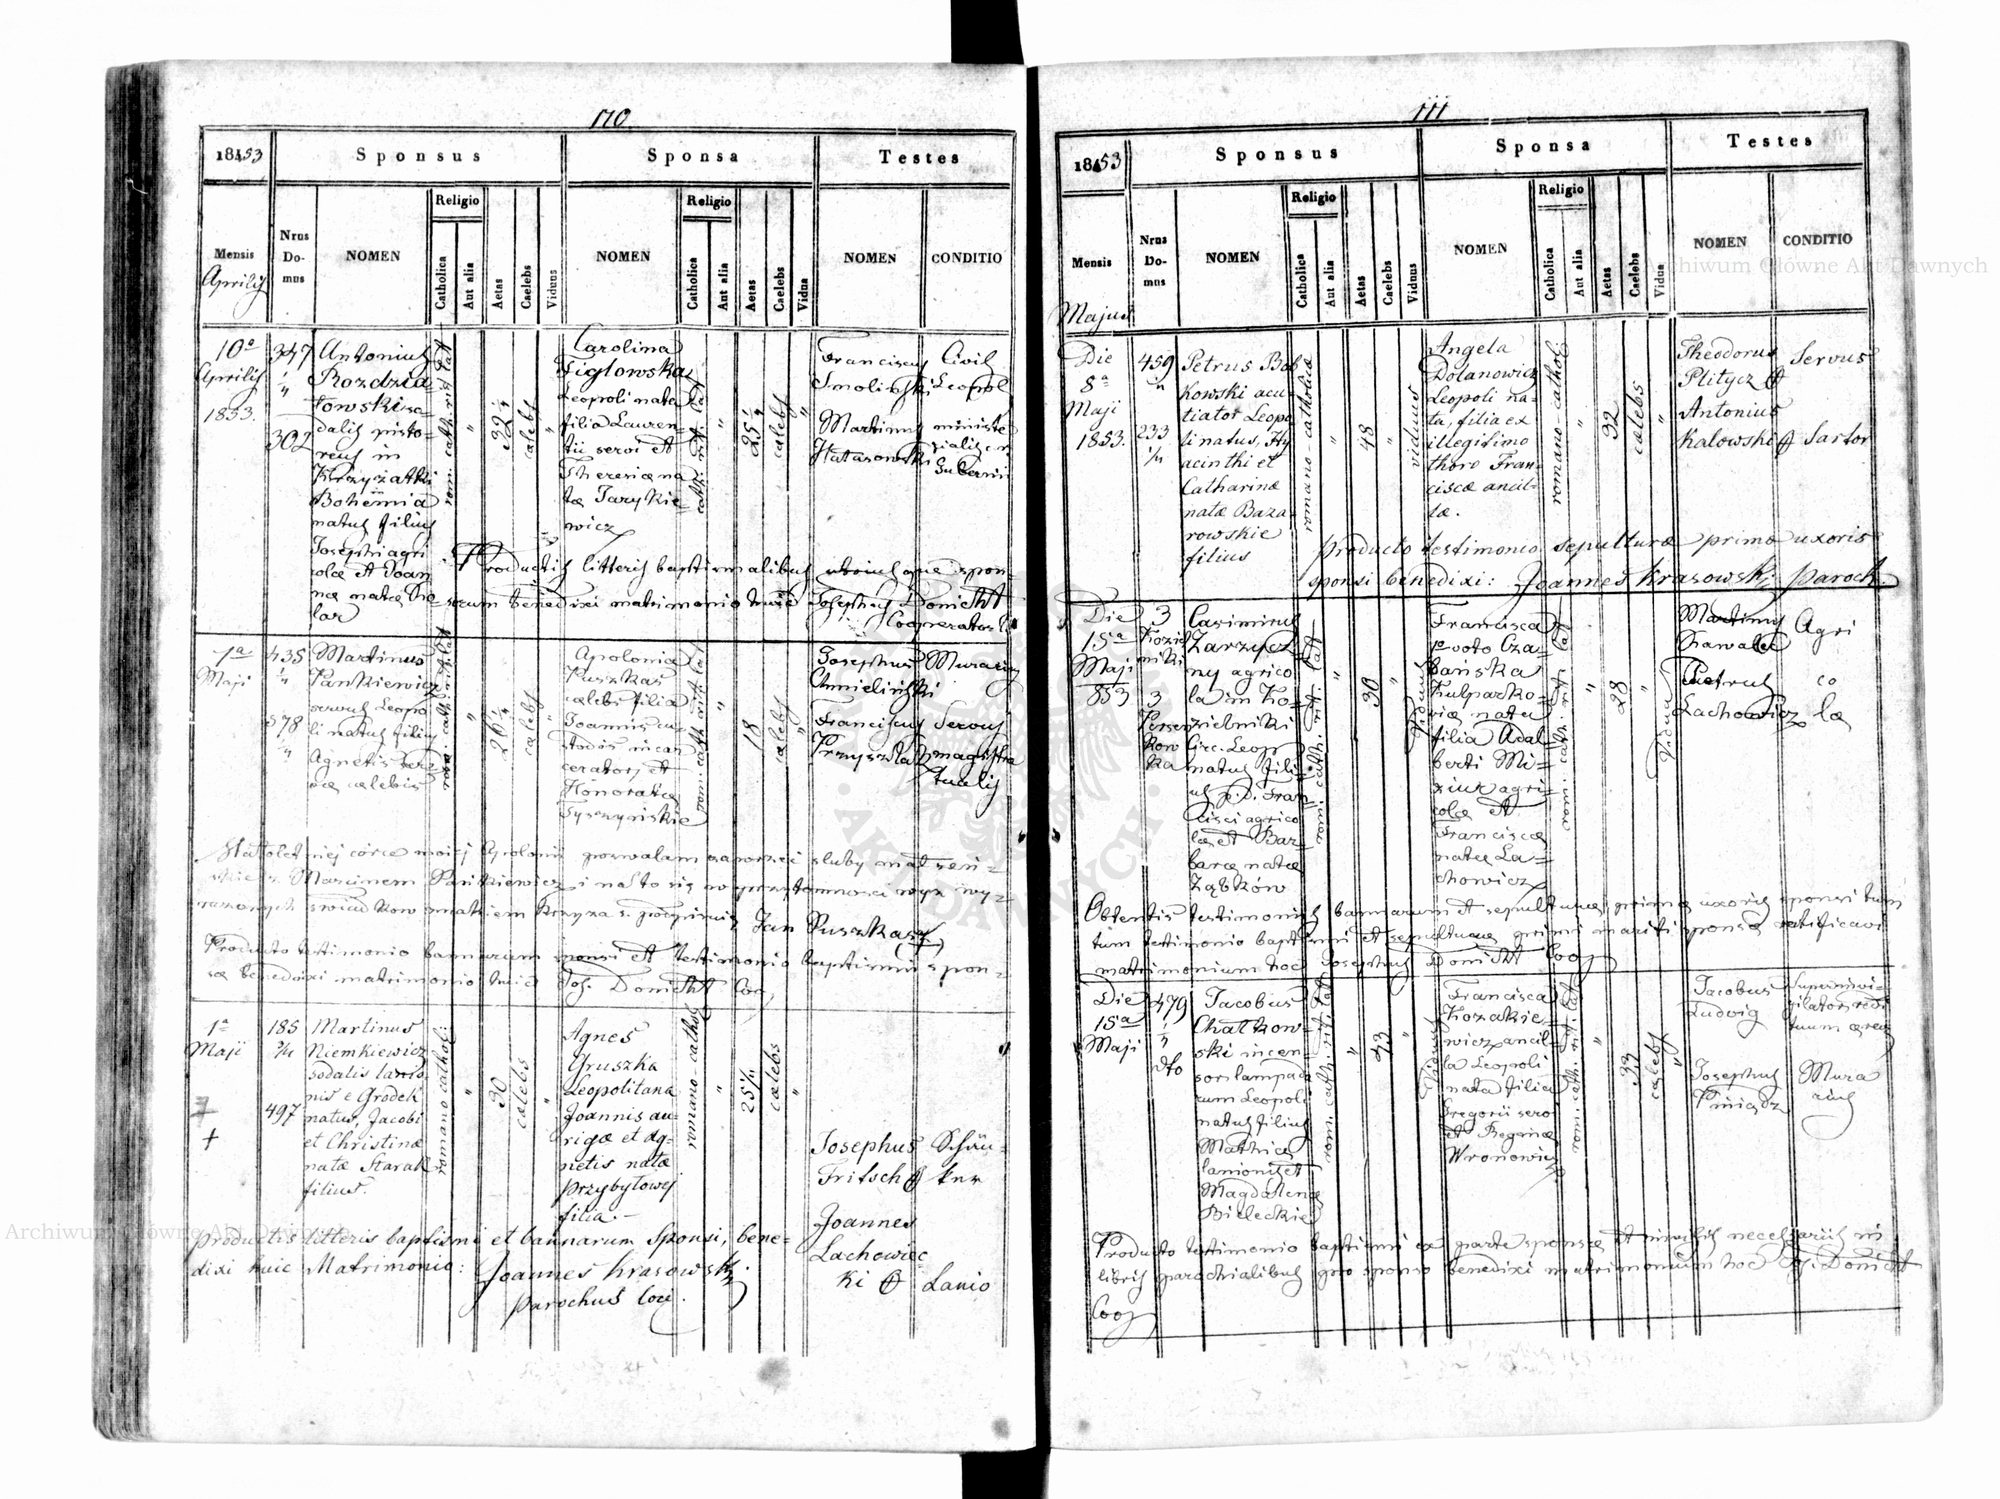 110
1853 Sponsus Sponsa Testes
Religio Religio
Mensis Nrus Domus NOMEN Catholica Aut alia Aetas Caelebs Viduus NOMEN Catholica Aut alia Aetas Caelebs Vidua NOMEN CONDITIO
Aprilis
10ª
Aprilis
1853.
347
302
Antonius
Rozdzia
towski so
dalis pisto-
rius in
Bohëmia
natus filius
Josephi agri
colæ et Joan
næ natæ Ko
lar
rom. cath. rit. lat.
"
32
calebs
"
Carolina
Figlowska
Leopoli nata
filia Lauren-
tii servi et
Theresiæ na
tæ Jarykie-
wicz
cath. rit. lat.
"
25
calebs
"
Franciscus
Smoliński
Martinus
Civil
Leopol
ministe
rialis
Guberni
Productis litteris baptismalibus utriusque spon-
sorum benedixi matrimonio huic Josephus Donicht
Cooperator
1ª
Maji
435
578
Martinus
Pankiewicz
servus Leopo
li natus filius
Agnetis
cælebis
rom. cath. rit. lat.
"
26
calebs
Apolonia
Puszkas
cælebs filia
Joannis cu-
stodis incar
ceratorj et
Honoratæ
Tyszyńskie
rom. cath. rit. lat.
"
18
calebs
"
Josephus
Chmieliński
Franciscus
Przyszla
Murarius
Servus
magistra
tualis
Małoletniej córce mojej Apolonii pozwalam zawrzeć śluby małżeń-
skie z Marcinem Pańkiewicz i na to się w przytomności wyż wy-
rażonych świadków znakiem krzyża s. podpisuję Jan Puszkas +
Producto testimonio bannorum sponsi et testimonio baptismi spon-
sæ benedixi matrimonio huic Jos. Donicht Coop
1ª
Maji
+
185
497
Martinus
Niemkiewicz
sodalis lanio
nis e Grodek
natus, Jacobi
et Christinæ
natæ Starak
filius.
romano cathol:
"
30
cælebs
"
Agnes
Gruszka
Leopolitana
Joannis au-
rigæ et Ag-
netis natæ
Przybyłowej
filia.
romano-cathol
"
25
cælebs
"
Josephus
Fritsch +
Joannes
Lachowiec-
ki +
Schän-
ker
Lanio
Productis litteris baptismi et bannorum Sponsi, bene-
dixi huic Matrimonio: Joannes Krasowski.
parochus loci.
111
1853 Sponsus Sponsa Testes
Religio Religio
Mensis Nrus Domus NOMEN Catholica Aut alia Aetas Caelebs Viduus NOMEN Catholica Aut alia Aetas Caelebs Vidua NOMEN CONDITIO
Majus
Die
8ª
Maji
1853.
459
233
Petrus Bob
kowski acu
tiator Leopo
li natus, Hy
acinthi et
Catharinæ
natæ Baza
rowskie
filius
romano-catholicæ
"
48
"
viduus
Angela
Dolanowicz
Leopoli na-
ta, filia ex
illegitimo
thoro Fran-
ciscæ ancil-
læ.
romano-catholi
"
32
cælebs
"
Theodorus
Plitycz +
Antonius
Kalowski +
Servus
Sartor
producto testimonio sepulturæ primæ uxoris
sponsi benedixi: Joannes Krasowski Paroch.
Die
15ª
Maji
853
3
Koziel
niki
3
Persen
kow
ka
Casimirus
Zarzycz
ny agrico
la in Ko-
zielniki
Circ. Leop
natus fili
us p. d. Fran
cisci agrico
læ et Bar-
baræ natæ
Ząbków
rom. cath. rit. lat.
"
30
"
Viduus
Francisca
1º voto Cza-
bańska
Kulparko-
wiæ nata
filia Adal
berti Mi-
ziur agri-
colæ et
Franciscæ
natæ La-
chowicz
rom. cath. rit. lat
"
28
"
Vidua
Martinus
Hawalec
Petrus
Lachowicz
Agri
co
læ
Obtentis testimoniis bannorum et sepulturæ primæ uxoris sponsi tum
tum testimonio baptismi et sepulturæ primi mariti sponsæ ratificavi
matrimonium hoc Josephus Donicht Coop
Die
15ª
Maji
479
dto
Jacobus
Chatkow-
ski incen-
sor lampada
rum Leopoli
natus filius
Mathiæ
lanionis et
Magdalenæ
Bieleckie
rom. cath. rit. lat.
"
43
"
Viduus
Francisca
Kozakie-
wicz ancil-
la Leopoli
nata filia
Gregorii servi
et Reginæ
Wronowicz
rom. cath. rit. lat.
"
33
calebs
"
Jacobus
Ludwig
Josephus
Pniądz
Supervi-
gilator
Mura
rius
Producto testimonio baptismi ex parte sponsæ et necessariis in
libris parochialibus pro sponso benedixi matrimonium hoc Jos. Donicht
Coop
Archiwum Główne Akt Dawnych
Archiwum Główne Akt Dawnych